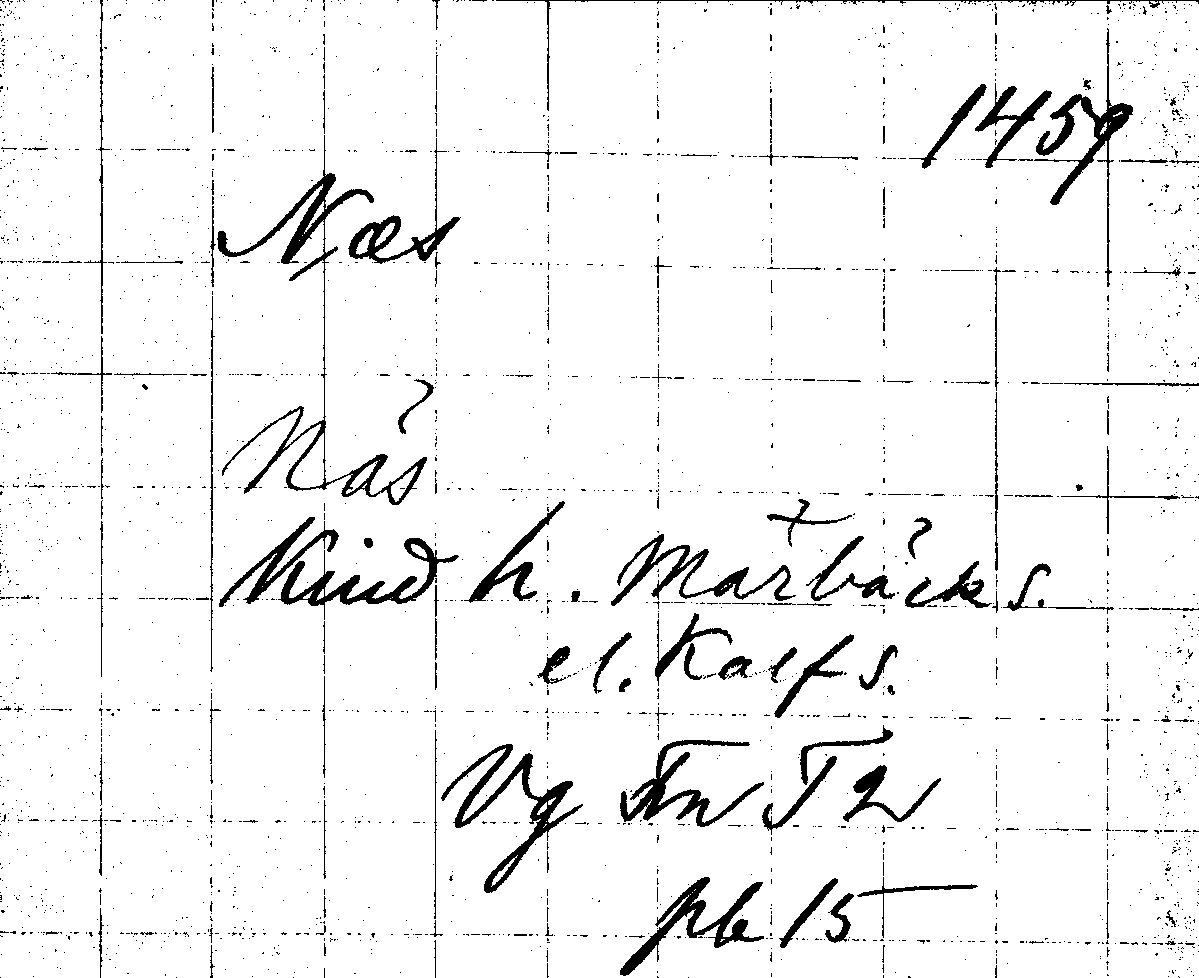 1459
Næs
Näs
Kind h. Mårbäck s.
el. Kalf s.
Vg Fn T 2
pb 15